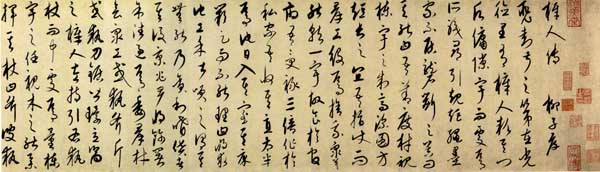 梓人傳 柳子厚
裴封叔之第在光
德里有梓人款其門
願傭隟宇而處焉
所職尋引規矩繩墨
家不居礱斲之器問
其能曰吾善度材視
棟宇之制高深圓方
短長之宜吾指使而
群工役焉捨我衆莫
能就一宇故食於官
府吾受祿三倍作於
私家吾收其直太半
焉他日入其室其床
闕足而不能理曰將求
他工余甚笑之謂其
無能而貪祿嗜貨者
其後京兆尹將飾官署
余往過焉委群材
會衆工或執斧斤
或執刀鋸皆環立嚮
之梓人左持引右執
杖而中處焉量棟
宇之任視木之能舉
揮其杖曰斧彼執